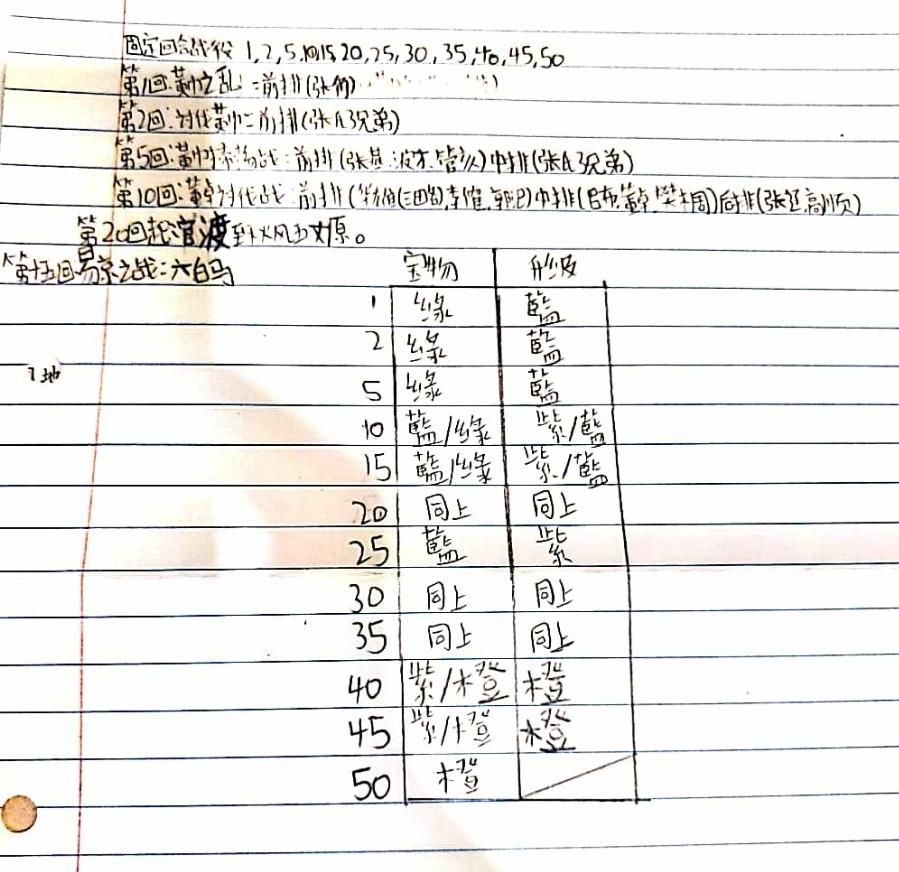 固定回合战役 1,2,5,10,15,20,25,30,35,40,45,50
第1回:黄巾之乱:前排(张
第2回:讨伐黄巾:前排(张氏3兄弟)
第5回:黄巾 战:前排(张 波才.管亥)中排(张氏3兄弟)
第10回:董卓讨伐战:前排(华雄 李傕, )中排(吕布,董卓,樊稠)后排(张辽,高顺)
第20回起官渡到秋风五丈原。
第十五回易京之战:六白马
宝物 形级
1 绿 藍
2 绿 藍
5 绿 藍
10 藍/绿 紫/藍
15 藍/绿 紫/藍
20 同上 同上
25 藍 紫
30 同上 同上
35 同上 同上
40 紫/橙 橙
45 紫/橙 橙
50 橙